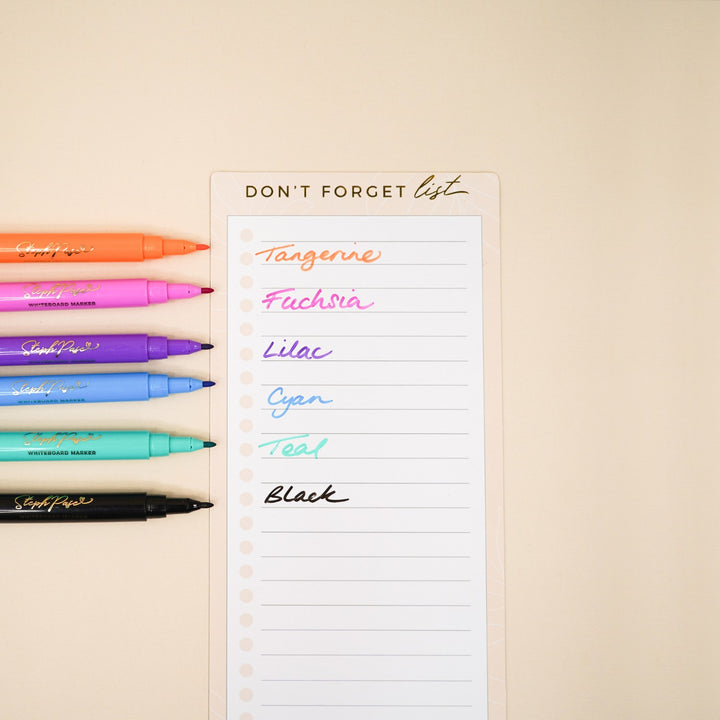 DON'T FORGET list
Tangerine
Fuchsia
Lilac
Cyan
Teal
Black
Steph Pase
Steph Pase
WHITEBOARD MARKER
Steph Pase
Steph Pase
WHITEBOARD MARKER
Steph Pase
WHITEBOARD MARKER
Steph Pase